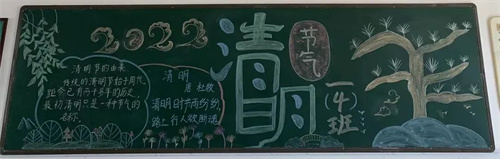 2022
清明
节气
一(4)班
清明节的由来
传统的清明节始于周代,
距今已有两千多年的历史,
最初清明只是一种节气的
名称。
清明
唐 杜牧
清明时节雨纷纷,
路上行人欲断魂